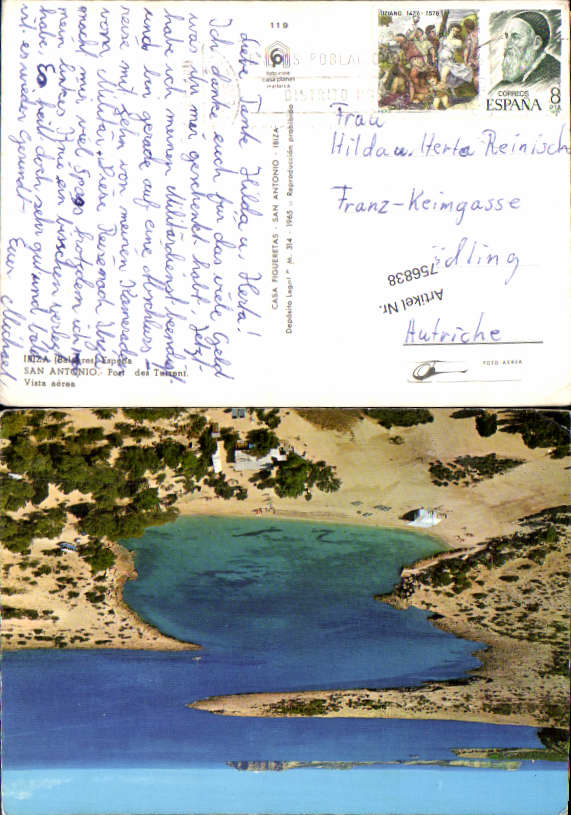 119
Liebe Tante Hilda u. Herta!
Ich danke euch für das viele Geld
was ihr mir geschenkt habt. Jetzt
habe ich meinen Militärdienst beendet
und bin gerade auf eine Abschluss-
reise mit zehn von meinen Kameraden
vom Militär. Diese Reise nach Ibiza
macht mir viel Spass trotzdem ich
mein linkes Knie ein bisschen verletzt
habe. Es heilt doch sehr gut und bald
ist es wieder Gesund-
Euer Michael
IBIZA (Baleares) España
SAN ANTONIO.- Port des Torrent.
Vista aérea
foto-cine
casa planas
mallorca
CASA FIGUERETAS - SAN ANTONIO - IBIZA
Depósito Legal B. M. 314 - 1965 - Reproducción prohibida
TIZIANO 1477 - 1576
CORREOS
ESPAÑA
8
PTA
POBLAC
DISTRITO
Frau
Hilda u. Herta Reinisch
Franz-Keimgasse
ödling
Autriche
Artikel Nr.
756838
FOTO AEREA